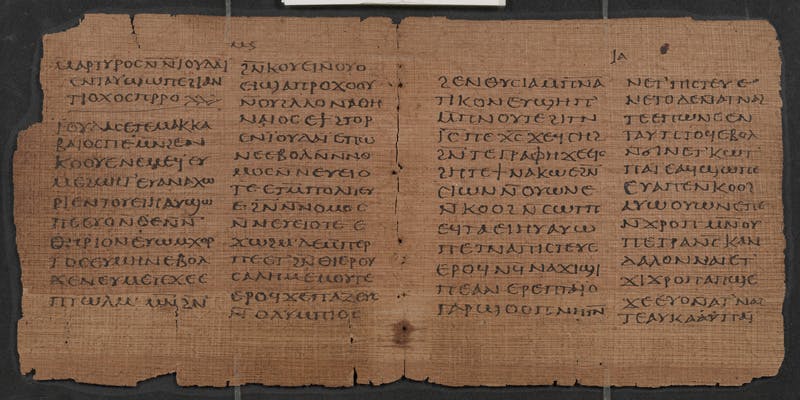 ⲙⲁⲣⲧⲩⲣⲟⲥ ⲛⲛⲓⲟⲩⲇⲁⲓ
ⲉⲛⲧⲁⲩϣⲱⲡⲉ ϩⲓ ⲁⲛ
ⲧⲓⲟⲭⲟⲥ ⲡⲣⲣⲟ
ⲓⲟⲩⲇⲁⲥ ⲉⲧⲉ ⲙⲁⲕⲕⲁ
ⲃⲁⲓⲟⲥ ⲡⲉ ⲙⲛ ϩⲉⲛ
ⲕⲟⲟⲩⲉ ⲛⲉⲙⲉϥ ⲉⲩ
ⲙⲉϩⲙⲏⲧ ⲉⲩⲁⲛⲁⲭⲱ
ⲣⲓ ⲉⲛⲧⲟⲩⲉⲓⲏ ⲁⲩϣⲱ
ⲡⲉ ⲉⲩⲟⲛϩ
ⲑⲏⲣⲓⲟⲛ ⲉⲩⲱⲙ ⲭⲟⲣ
ⲧⲟⲥ ⲉⲩⲙⲏⲛ ⲉⲃⲟⲗ
ϫⲉ ⲛⲉⲩⲙⲉⲧⲉⲭⲉ ⲉ
ⲡⲧⲱⲗⲙ ⲙⲛ ϩⲛ
ϩⲛⲕⲟⲩⲉⲓ ⲛⲟⲩⲟ
ⲉⲓϣ ⲁ ⲡⲣⲣⲟ ϫⲟⲟⲩ
ⲛⲟⲩϩⲗⲗⲟ ⲛⲁⲑⲏ
ⲛⲁⲓⲟⲥ ⲉϯϩⲧⲟⲣ
ⲉⲛⲓⲟⲩⲇⲁⲓ ⲉⲡⲱ
ⲛⲉ ⲉⲃⲟⲗ ⲛⲛⲛⲟ
ⲙⲟⲥ ⲛⲛⲉⲩⲉⲓⲟ
ⲧⲉ ⲉⲧⲙⲡⲟⲗⲓⲧⲉⲩ
ⲉϩⲛ ⲛⲛⲟⲙⲟⲥ
ⲛⲛⲉⲩⲉⲓⲟⲧⲉ ⲉ
ϫⲱϩⲙ ⲇⲉ ⲙⲡⲉⲣ
ⲡⲉ ⲉⲧϩⲛ ⲑⲓⲉⲣⲟⲩ
ⲥⲁⲗⲏⲙ ⲉⲙⲟⲩⲧⲉ
ⲉⲣⲟϥ ϫⲉ ⲡⲁ ⲍⲉⲩⲥ
ⲛⲟⲗⲩⲙⲡⲓⲟⲥ
ⲓⲁ
ϩⲉⲛⲑⲩⲥⲓⲁ ⲙⲡⲛⲁ
ⲧⲓⲕⲟⲛ ⲉⲩϣⲏⲡ
ⲙⲡⲛⲟⲩⲧⲉ ϩⲓⲧⲛ
ⲓⲥ ⲡⲉⲭⲥ ϫⲉ ϥⲥⲏϩ
ϩⲛ ⲧⲉⲅⲣⲁⲫⲏ ϫⲉ ⲉⲓⲥ
ϩⲏⲧⲉ ϯⲛⲁⲕⲱ ϩⲛ
ⲥⲓⲱⲛ ⲛⲟⲩⲱⲛⲉ
ⲛⲕⲟⲟϩ ⲛⲥⲱⲧⲡ
ⲉϥⲧⲁⲉⲓⲏⲩ ⲁⲩⲱ
ⲡⲉⲧⲛⲁⲡⲓⲥⲧⲉⲩⲉ
ⲉⲣⲟϥ ⲛϥⲛⲁϫⲓϣⲓ
ⲡⲉ ⲁⲛ ⲉⲣⲉ ⲡⲧⲁⲓⲟ
ⲅⲁⲣ ϣⲟⲟⲡ ⲛⲏⲧⲛ
ⲛⲉⲧⲡⲓⲥⲧⲉⲩⲉ
ⲛⲉⲧⲟ ⲇⲉ ⲛⲁⲧⲛⲁϩ
ⲧⲉ ⲉⲡⲱⲛⲉ ⲉⲛ
ⲧⲁⲩⲧⲥⲧⲟϥ ⲉⲃⲟⲗ
ⲛϭⲓ ⲛⲉⲧⲕⲱⲧ
ⲡⲁⲓ ⲉⲁϥϣⲱⲡⲉ
ⲉⲩⲁⲡⲉ ⲛⲕⲟⲟϩ
ⲁⲩⲱ ⲟⲩⲱⲛⲉ
ⲛϫⲣⲟⲡ ⲙⲛ ⲟⲩ
ⲡⲉⲧⲣⲁ ⲛⲥⲕⲁⲛ
ⲇⲁⲗⲟⲛ ⲛⲁⲓ ⲉⲧ
ϫⲓϫⲣⲟⲡ ⲁⲡϣⲁϫⲉ
ϫⲉ ⲉⲩⲟ ⲛⲁⲧⲛⲁϩ
ⲧⲉ ⲁⲩⲕⲁⲁⲩ ⲙⲡⲁⲓ